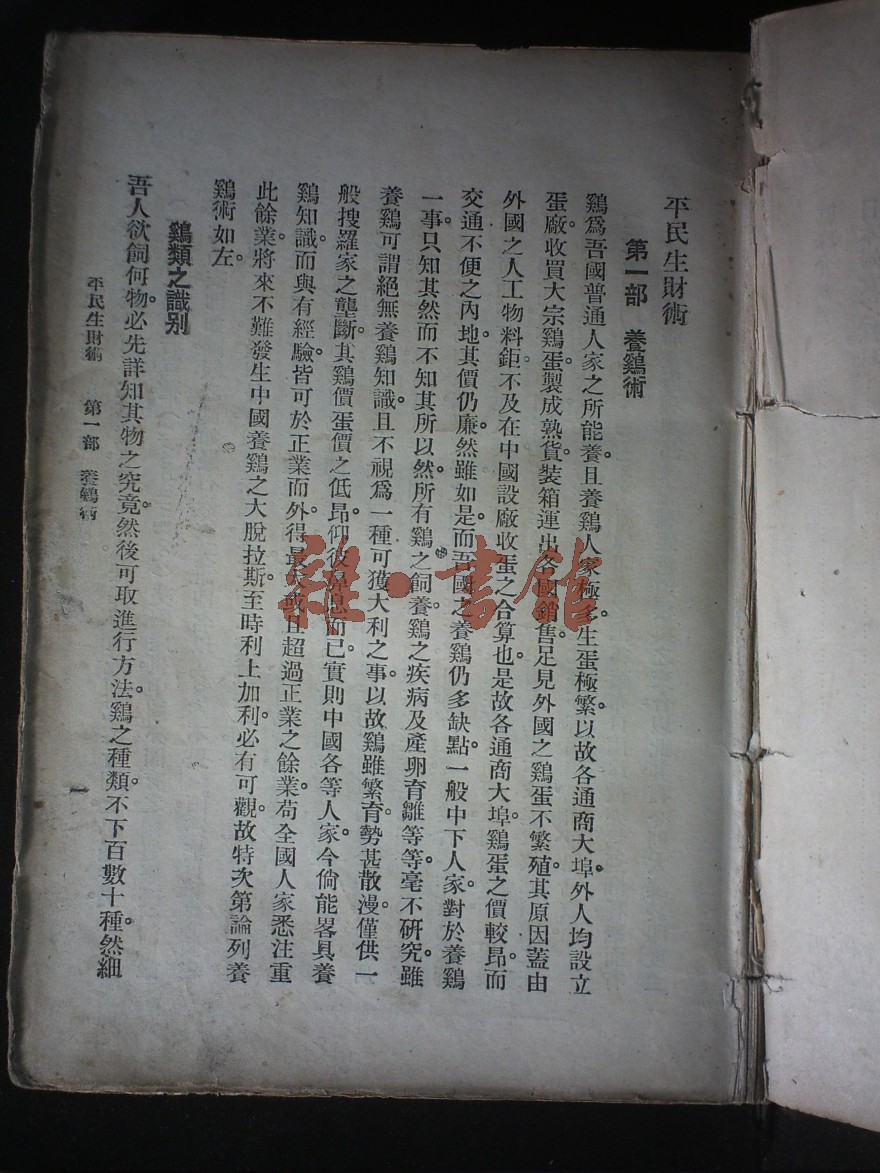 平民生財術
第一部　養鷄術
鷄爲吾國普通人家之所能養。且養鷄人家極多。生蛋極繁。以故各通商大埠。外人均設立
蛋廠。收買大宗鷄蛋。製成熟貨。裝箱運出各國銷售。足見外國之鷄蛋不繁殖。其原因蓋由
外國之人工物料鉅。不及在中國設廠收蛋之合算也。是故各通商大埠。鷄蛋之價較昂。而
交通不便之內地。其價仍廉。然雖如是。而吾國之養鷄仍多缺點。一般中下人家。對於養鷄
一事。只知其然而不知其所以然。所有鷄之飼養。鷄之疾病及產卵育雛等等。毫不研究。雖
養鷄可謂絕無養鷄知識。且不視爲一種可獲大利之事。以故鷄雖繁育。勢甚散漫。僅供一
般搜羅家之壟斷。其鷄價蛋價之低昂。仰彼鼻息而已。實則中國各等人家。今倘能畧具養
鷄知識。而與有經驗。皆可於正業而外。得最大或且超過正業之餘業。苟全國人家悉注重
此餘業。將來不難發生中國養鷄之大脫拉斯。至時利上加利。必有可觀。故特次第論列養
鷄術如左。
鷄類之識別
吾人欲飼何物。必先詳知其物之究竟。然後可取進行方法。鷄之種類。不下百數十種。然細
平民生財術　第一部　養鷄術
一
雜·書館